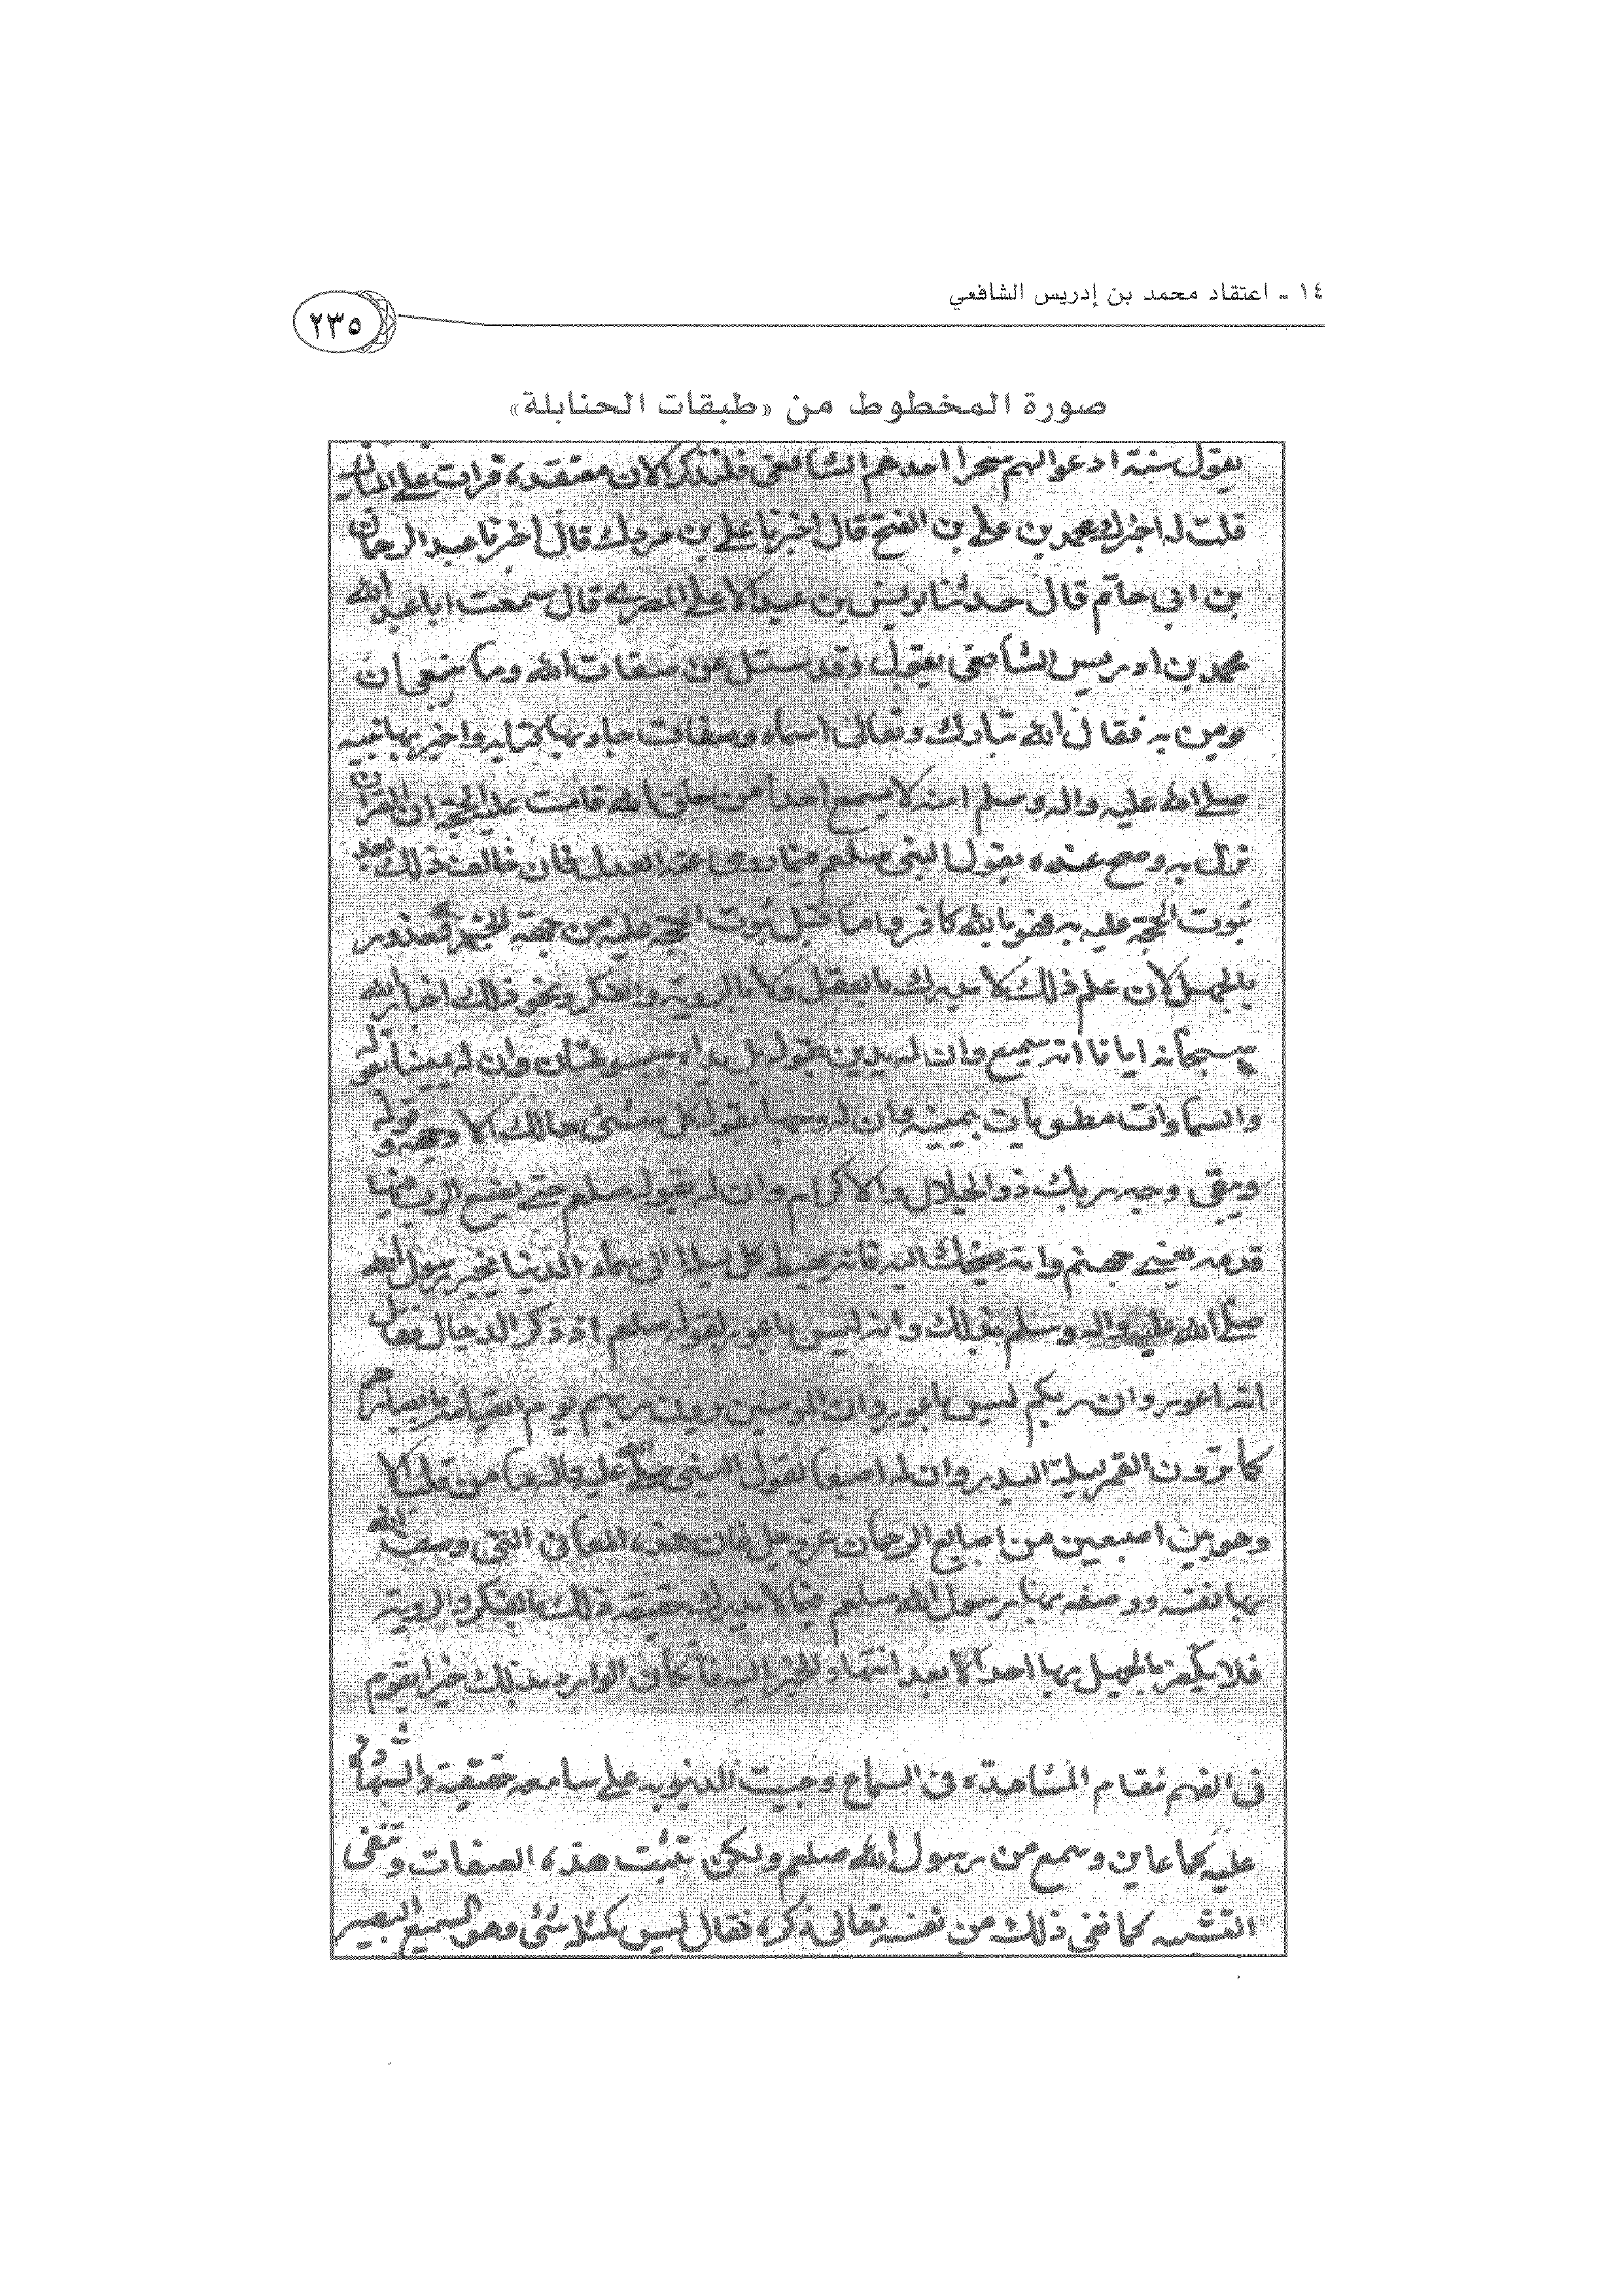 ١٤ - اعتقاد محمد بن إدريس الشافعي
٢٣٥
صورة المخطوط من «طبقات الحنابلة»
يقول ستة ادعو الهم سحرا احدهم الشافعي فلنذكر الان معتقده قرات على
قلت له اخبرك محمد بن على بن الفتح قال اخبرنا على بن مردك قال اخبرنا عبد الرحمان
بن ابى حاتم قال حدثنا يونس بن عبد الاعلى المصرى قال سمعت ابا عبد الله
محمد بن ادريس الشافعى يقول وقد سئل عن صفات الله وما ينبغى ان
يومن به فقال لله تبارك وتعالى اسماء وصفات جاء بها كتابه واخبر بها نبيه
صلى الله عليه واله وسلم امته لا يسع احدا من خلق الله قامت عليه الحجة ان القران
نزل به وصح عنده بقول النبى صلعم فيما روى عنه العدل فان خالف ذلك بعد
ثبوت الحجة عليه به فهو بالله كافر فاما قبل ثبوت الحجة عليه من جهة الخبر فمعذور
بالجهل لان علم ذلك لا يدرك بالعقل ولا بالروية والفكر ونحو ذلك اخبار الله
سبحانه ايانا انه سميع وان له يدين بقوله بل يداه مبسوطتان وان له يمينا بقوله
والسماوات مطويات بيمينه وان له وجها بقوله كل شئ هالك الا وجهه وقوله
ويبقى وجه ربك ذو الجلال والاكرام وان له بقوله صلعم حتى يضع الرب فيها
قدمه يعنى جهنم وانه يضحك اليه فانه يهبط كل ليلة الى سماء الدنيا بخبر رسول الله
صلى الله عليه واله وسلم بذلك وانه ليس باعور لقوله صلعم اذ ذكر الدجال فقال
انه اعور وان ربكم ليس باعور وان المومنين يرون ربهم يوم القيامة بابصارهم
كما ترون القمر ليلة البدر وان له اصبعا بقول النبى صلى الله عليه واله ما من قلب الا
وهو بين اصبعين من اصابع الرحمان عز وجل فان هذه المعانى التى وصف الله
بها نفسه ووصفه بها رسول الله صلعم فيما لا يدرك حقيقة ذلك بالفكر والروية
فلا يكفر بالجهل بها احد الا بعد انتهاء الخبر اليه فان كان الوارد بذلك خبرا يقوم
فى الفهم مقام المشاهدة فى السماع وجبت الدينونة على سامعه حقيقة والشهادة
عليه كما عاين وسمع من رسول الله صلعم ولكن نثبت هذه الصفات وننفى
التشبيه كما نفى ذلك من نفسه تعالى ذكره فقال ليس كمثله شئ وهو السميع البصير